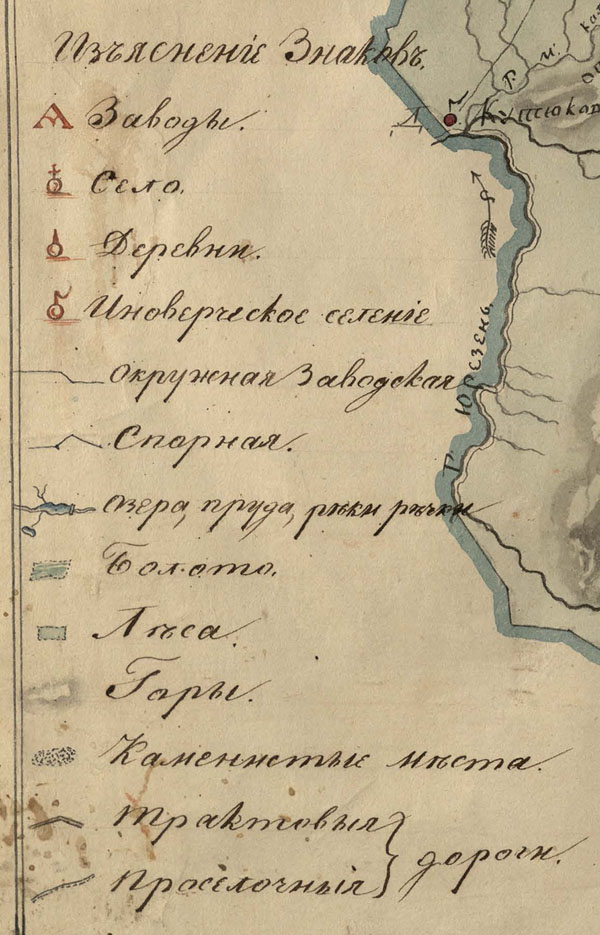 Изъясненіе Знаковъ.
Заводы.
Село.
Деревни.
Иноверческое селеніе
окружная Заводская
Спорная.
озера, пруда, рѣки рѣчки
Болото.
Лѣса.
Горы.
Каменистые мѣста.
трактовыя
проселочныя
дороги.
Р. Юрезень.